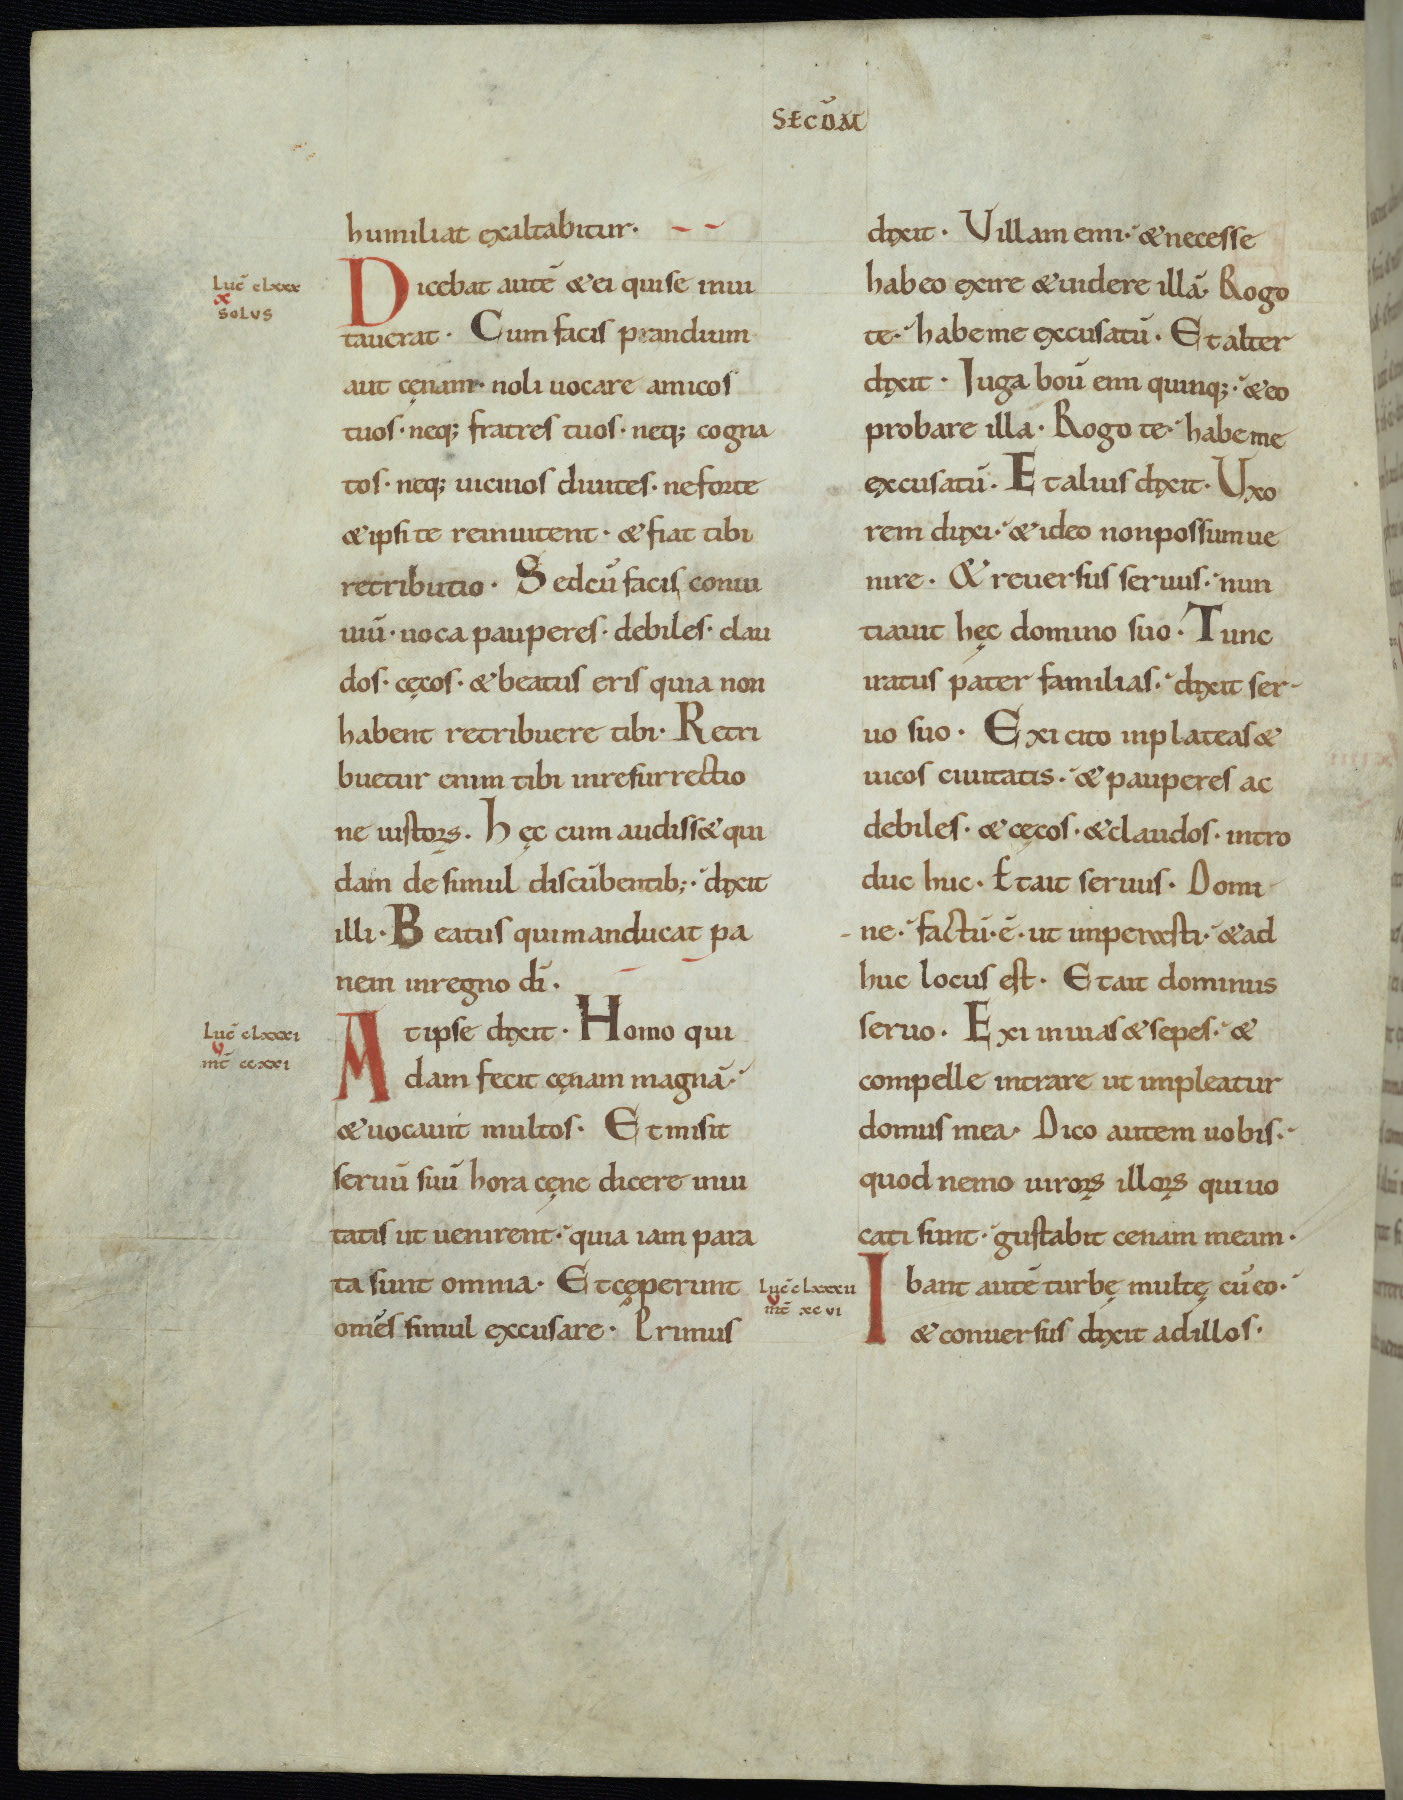 SECUM̄
humiliat exaltabitur·
Lūc clxxx
x
SOLUS
Dicebat autē & ei qui se inui
tauerat· Cum facis prandium
aut cęnam· noli uocare amicos
tuos· neq; fratres tuos· neq; cogna
tos· neq; uicinos diuites· ne forte
& ipsi te reinuitent· & fiat tibi
retributio· Sed cū facis conui
uiū· uoca pauperes· debiles· clau
dos· cęcos· & beatus eris quia non
habent retribuere tibi· Retri
buetur enim tibi in resurrectio
ne iustoꝝ. Hęc cum audiss& qui
dam de simul discūbentib;· dixit
illi· Beatus qui manducat pa
nem in regno dī·
Lūc clxxxi
v
mt̄ ccxxi
At ipse dixit· Homo qui
dam fecit cęnam magnā·
& uocauit multos· Et misit
seruū suū hora cęne dicere inui
tatis ut uenirent· quia iam para
ta sunt omnia· Et cęperunt
om̄es simul excusare· Primus
dixit· Villam emi· & necesse
habeo exire & uidere illā· Rogo
te· habe me excusatū· Et alter
dixit· Iuga boū emi quinq;· & eo
probare illa· Rogo te· habe me
excusatū· Et alius dixit· Vxo
rem duxi· & ideo non possum ue
nire· & reuersus seruus· nun
tiauit hęc domino suo· Tunc
iratus pater familias· dixit ser-
uo suo· Exi cito in plateas &
uicos ciuitatis· & pauperes ac
debiles· & cęcos· & claudos· intro
duc huc· Et ait seruus· Domi
ne· factū·ē· ut imperasti· & ad
huc locus est· Et ait dominus
seruo· Exi in uias & sepes· &
compelle intrare ut impleatur
domus mea· Dico autem uobis·
quod nemo uiroꝝ illoꝝ qui uo
cati sunt· gustabit cenam meam·
Lūc clxxxii
v
mt̄ xcvi
Ibant autē turbę multę cū eo·
& conuersus dixit ad illos·